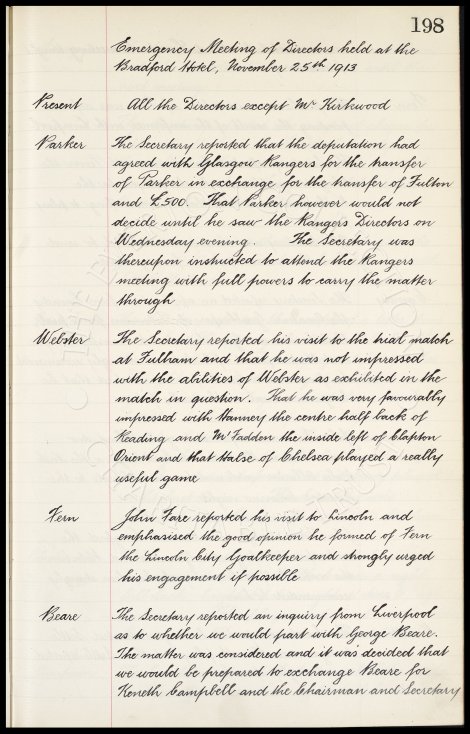 198
Emergency Meeting of Directors held at the
Bradford Hotel, November 25th 1913
Present All the Directors except Mr Kirkwood
Parker The Secretary reported that the deputation had
agreed with Glasgow Rangers for the transfer
of Parker in exchange for the transfer of Fulton
and £500. That Parker however would not
decide until he saw the Rangers Directors on
Wednesday evening. The Secretary was
thereupon instructed to attend the Rangers
meeting with full powers to carry the matter
through
Webster The Secretary reported his visit to the trial match
at Fulham and that he was not impressed
with the abilities of Webster as exhibited in the
match in question. That he was very favourably
impressed with Hanney the centre half back of
Reading and McFadden the inside left of Clapton
Orient and that Halse of Chelsea played a really
useful game
Fern John Fare reported his visit to Lincoln and
emphasised the good opinion he formed of Fern
the Lincoln City Goalkeeper and strongly urged
his engagement if possible
Beare The Secretary reported an inquiry from Liverpool
as to whether we would part with George Beare.
The matter was considered and it was decided that
we would be prepared to exchange Beare for
Keneth Campbell and the Chairman and Secretary